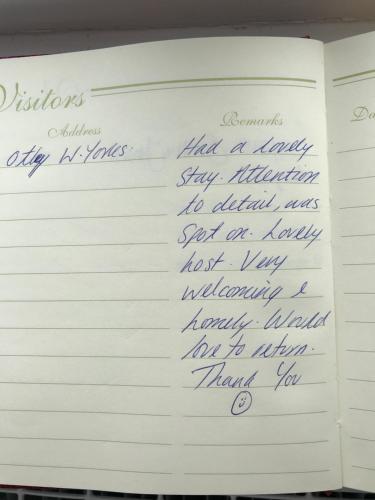 Visitors
Address
Remarks
Otley W. Yorks.
Had a lovely
stay. Attention
to detail, was
spot on. Lovely
host. Very
welcoming &
homely. Would
love to return.
Thank You